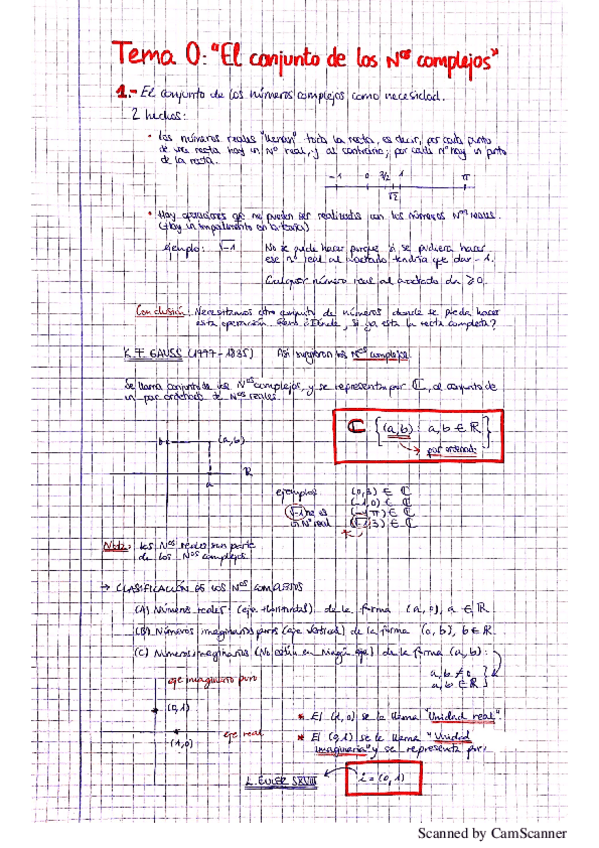 Tema 0: "El conjunto de los Nos complejos"
1.- El conjunto de los números complejos como necesidad.
2 hechos:
• Los números reales "llenan" toda la recta, es decir, por cada punto
de una recta hay un Nº real, y al contrario, por cada Nº hay un punto
de la recta.
-1 0 3/2 1 π
√2
• Hay operaciones que no pueden ser realizadas con los números
ejemplo: √-1 No se puede hacer porque si se pudiera hacer
ese nº real al cuadrado tendría que dar -1.
Cualquier número real al cuadrado da ≥0.
Conclusión: Necesitamos otro conjunto de números donde se pueda hacer
esta operación. ¿Dónde, si ya está la recta completa?
K.F. GAUSS (1777-1835) Así surgieron los Nos complejos.
Se llama conjunto de los Nos complejos, y se representa por ℂ, al conjunto de
un par ordenado de Nos reales.
ℂ {(a,b) : a,b ∈ ℝ}
par ordenado
b (a,b)
ℝ
a
ejemplos: (0,3) ∈ ℂ
(-1,0) ∈ ℂ
√-1 no es (-1,π) ∈ ℂ
un Nº real (√-1,3) ∈ ℂ
Nota: los Nos reales son parte
de los Nos complejos
→ CLASIFICACIÓN DE LOS Nos COMPLEJOS
(A) Números reales (eje horizontal) de la forma (a,0), a ∈ ℝ.
(B) Números imaginarios puros (eje vertical) de la forma (0,b), b ∈ ℝ.
(C) Números imaginarios (No están en Ningún eje) de la forma (a,b):
a,b ≠ 0
a,b ∈ ℝ
eje imaginario puro
(0,1)
eje real
(1,0)
* El (1,0) se le llama "Unidad real"
* El (0,1) se le llama "Unidad
imaginaria" y se representa por:
L. EULER S.XVIII i = (0,1)
Scanned by CamScanner